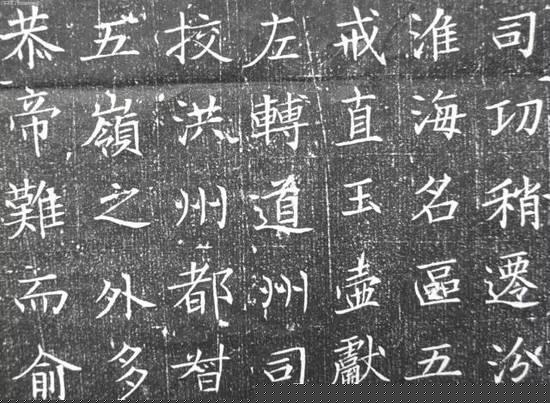 司功稍遷汾
淮海名區五
戒直玉壺獻
左轉道州司
挍洪州都督
五嶺之外多
恭帝難而俞